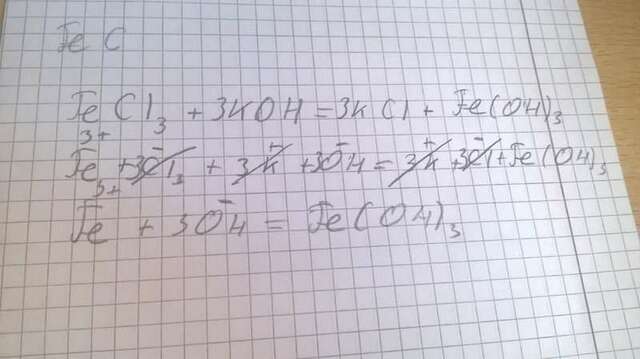 Fe C
FeCl₃ + 3KOH = 3KCl + Fe(OH)₃
Fe³⁺ + 3Cl₃⁻ + 3K⁺ + 3OH⁻ = 3K⁺ + 3Cl⁻ + Fe(OH)₃
Fe³⁺ + 3OH⁻ = Fe(OH)₃